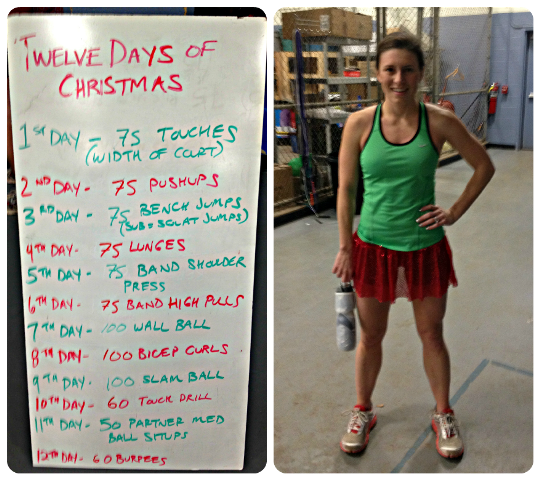 TWELVE DAYS OF
CHRISTMAS
1ST DAY - 75 TOUCHES
(WIDTH OF COURT)
2ND DAY - 75 PUSHUPS
3RD DAY - 75 BENCH JUMPS
(SUB = SQUAT JUMPS)
4TH DAY - 75 LUNGES
5TH DAY - 75 BAND SHOULDER
PRESS
6TH DAY - 75 BAND HIGH PULLS
7TH DAY - 100 WALL BALL
8TH DAY - 100 BICEP CURLS
9TH DAY - 100 SLAM BALL
10TH DAY - 60 TOUCH DRILL
11TH DAY - 50 PARTNER MED
BALL SITUPS
12TH DAY - 60 BURPEES